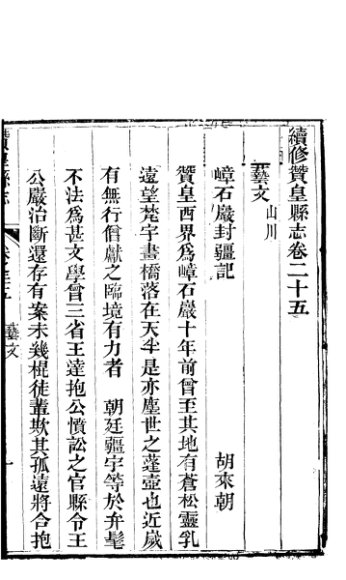 續修贊皇縣志卷二十五
藝文 山川
嶂石巖封疆記 胡來朝
贊皇西界為嶂石巖十年前曾至其地有蒼松靈乳
遠望梵宇畫橋落在天半是亦塵世之蓬壺也近歲
有無行僧獻之臨境有力者 朝廷疆宇等於弁髦
不法為甚文學曾三省王達抱公憤訟之官縣令王
公嚴治斷還存有案未幾棍徒輩欺其孤遠將合抱
藝文